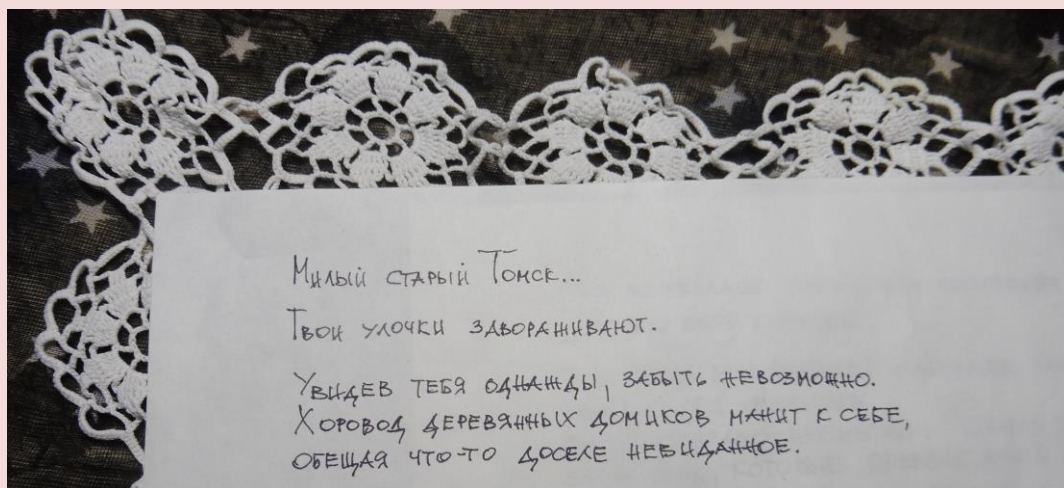 Милый старый Томск...
Твои улочки завораживают.
Увидев тебя однажды, забыть невозможно.
Хоровод деревянных домиков манит к себе,
обещая что-то доселе невиданное.